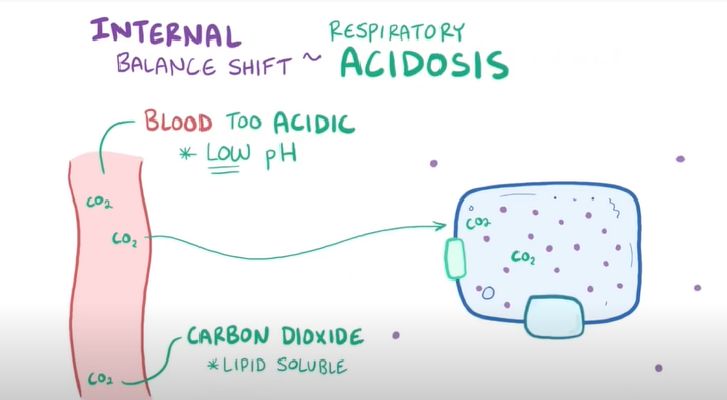 INTERNAL
BALANCE SHIFT ~
RESPIRATORY
ACIDOSIS
BLOOD TOO ACIDIC
* LOW pH
CO₂
CO₂
CO₂
CO₂
CO₂
CARBON DIOXIDE
* LIPID SOLUBLE